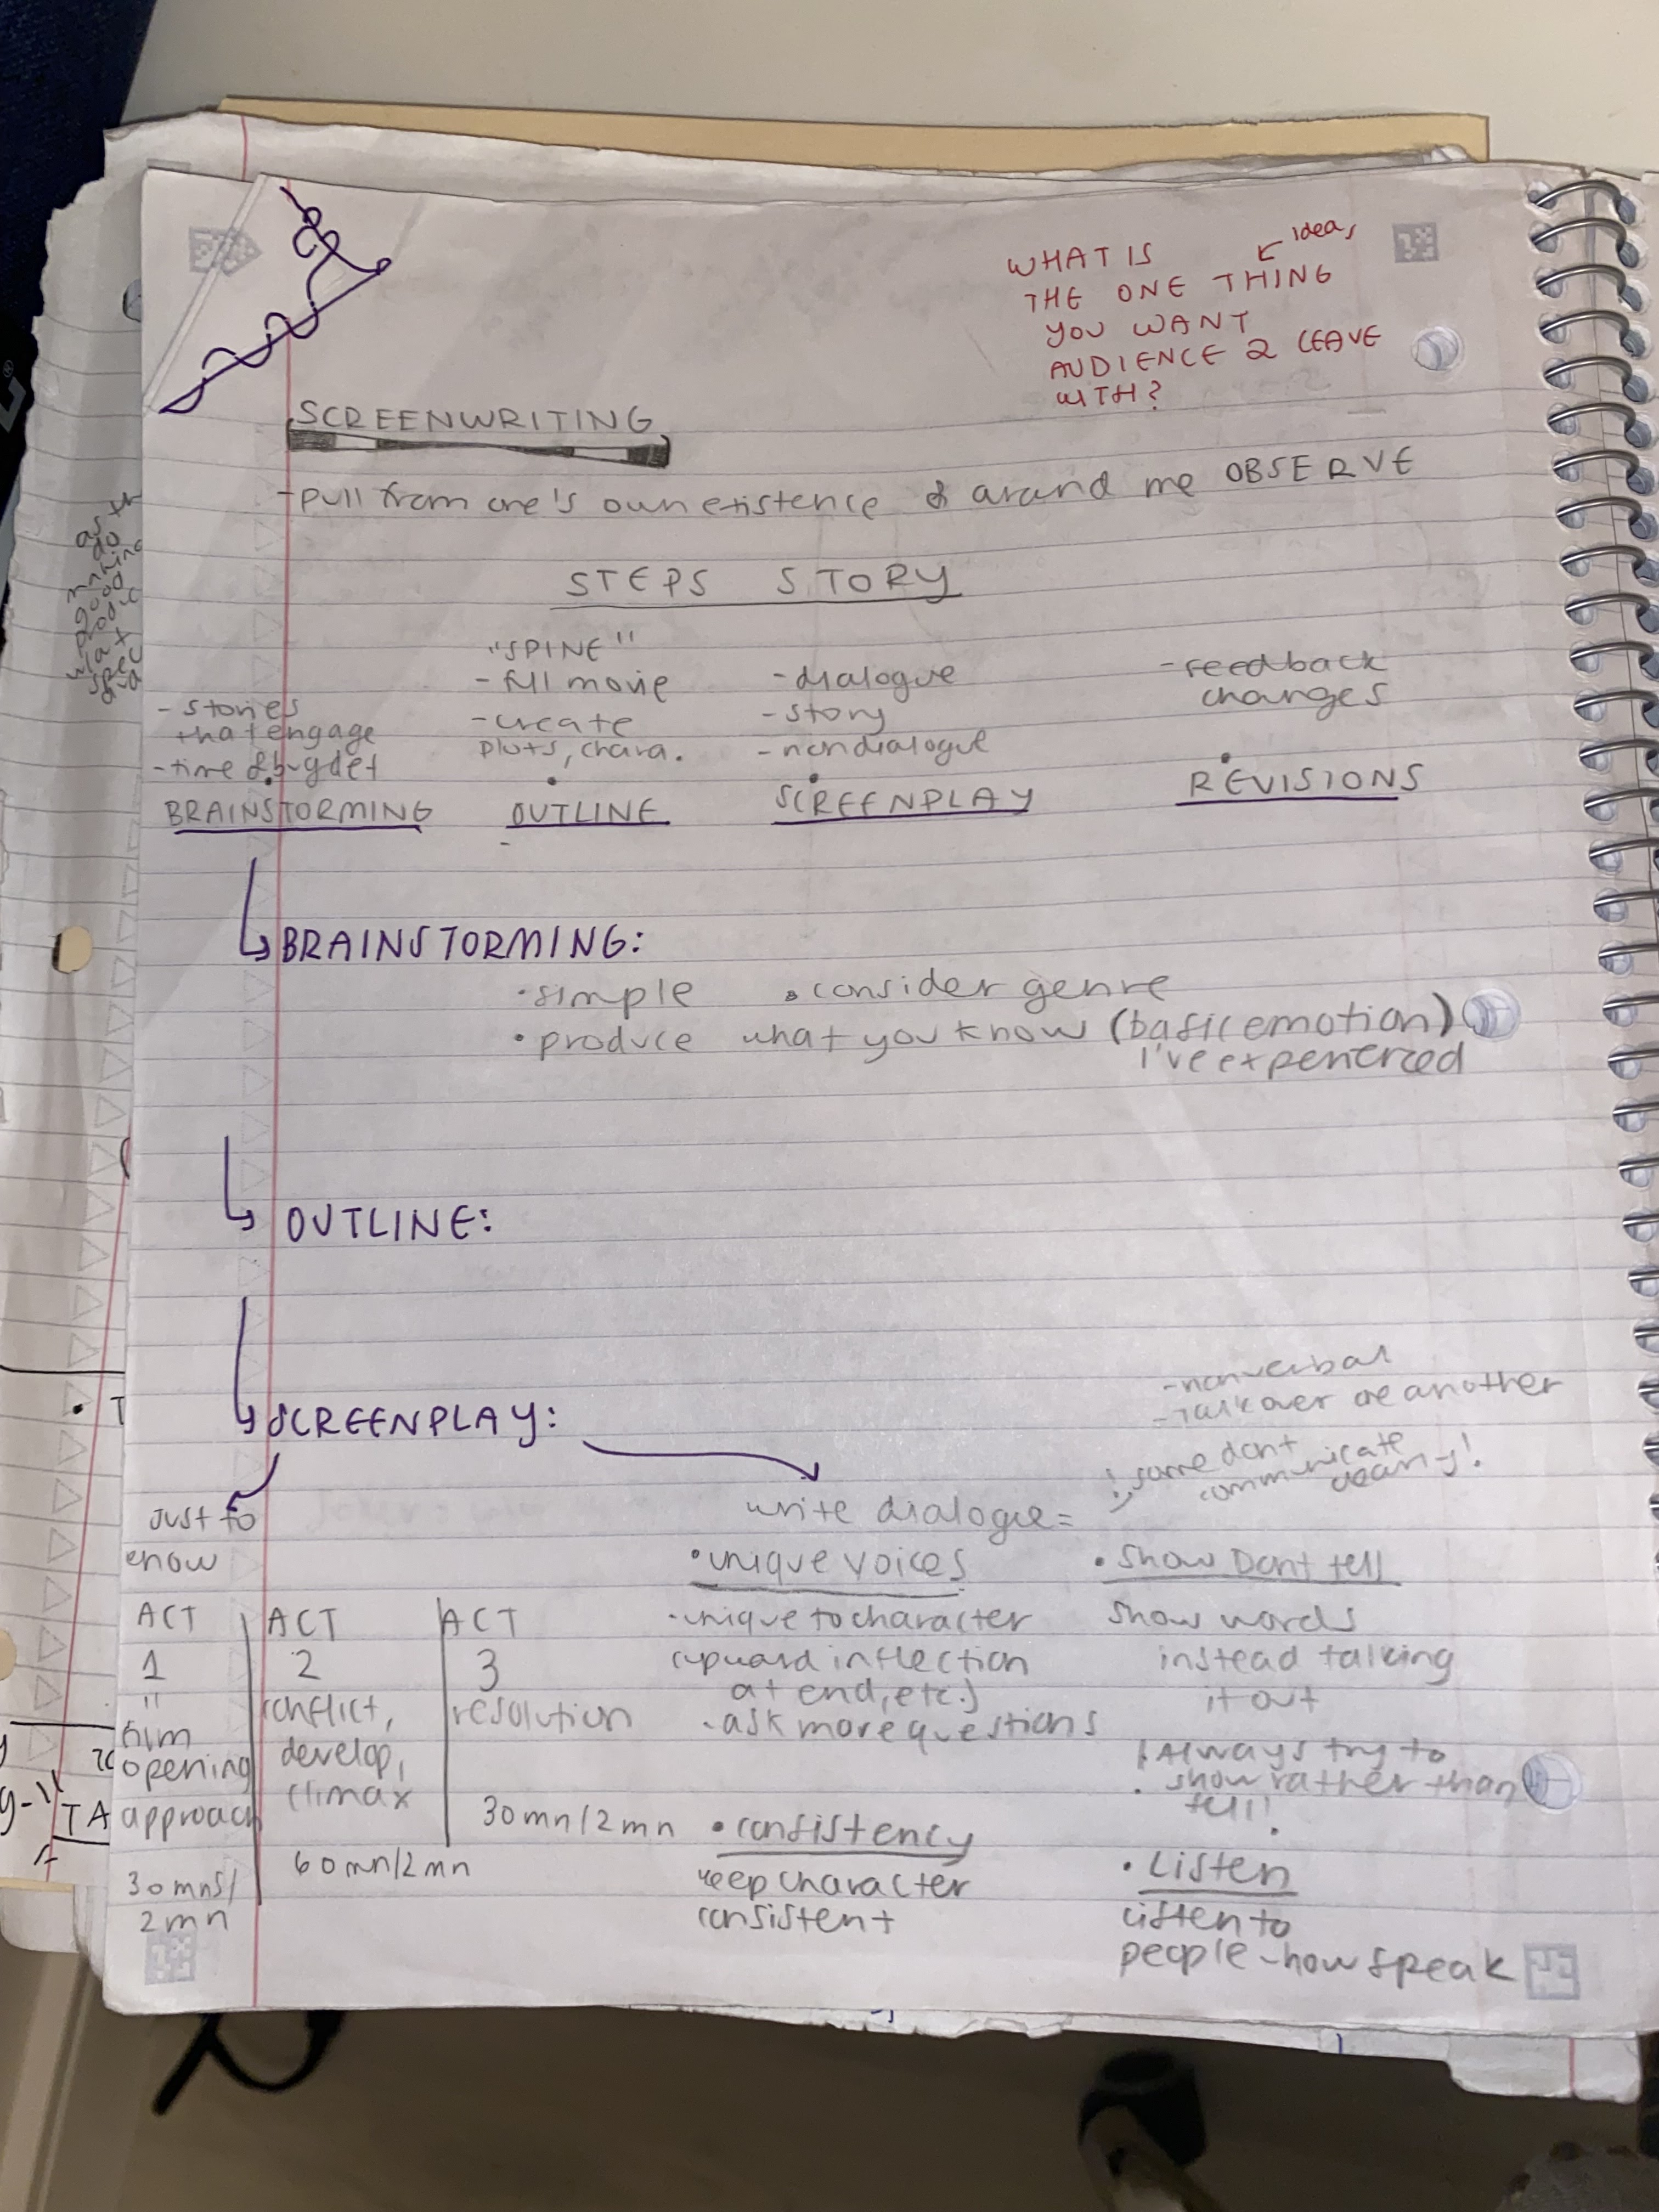 idea,
WHAT IS
THE ONE THING
YOU WANT
AUDIENCE 2 LEAVE
WITH?
SCREENWRITING
-pull from one's own existence & around me OBSERVE
STEPS STORY
- stories
that engage
-time & bugdet
BRAINSTORMING
"SPINE"
- full movie
-create
plots, chara.
OUTLINE
-dialogue
-story
-nondialogue
SCREENPLAY
-feedback
changes
REVISIONS
BRAINSTORMING:
•simple •consider genre
•produce what you know (basic emotion)
I've experienced
OUTLINE:
SCREENPLAY:
Just to
know
ACT
1
film
opening
approach
30mns/
2mn
ACT
2
conflict,
develop,
climax
60mn/2mn
ACT
3
resolution
30mn/2mn
-nonverbal
-Talk over one another
some dont
communicate
clearly!
write dialogue=
•unique voices
-unique to character
(upward inflection
at end, etc.)
-ask more questions
•consistency
keep character
consistent
•Show Dont tell
show words
instead talking
it out
!Always try to
show rather than
tell!
•Listen
listen to
people-how speak
as th
do
good
spec
TA